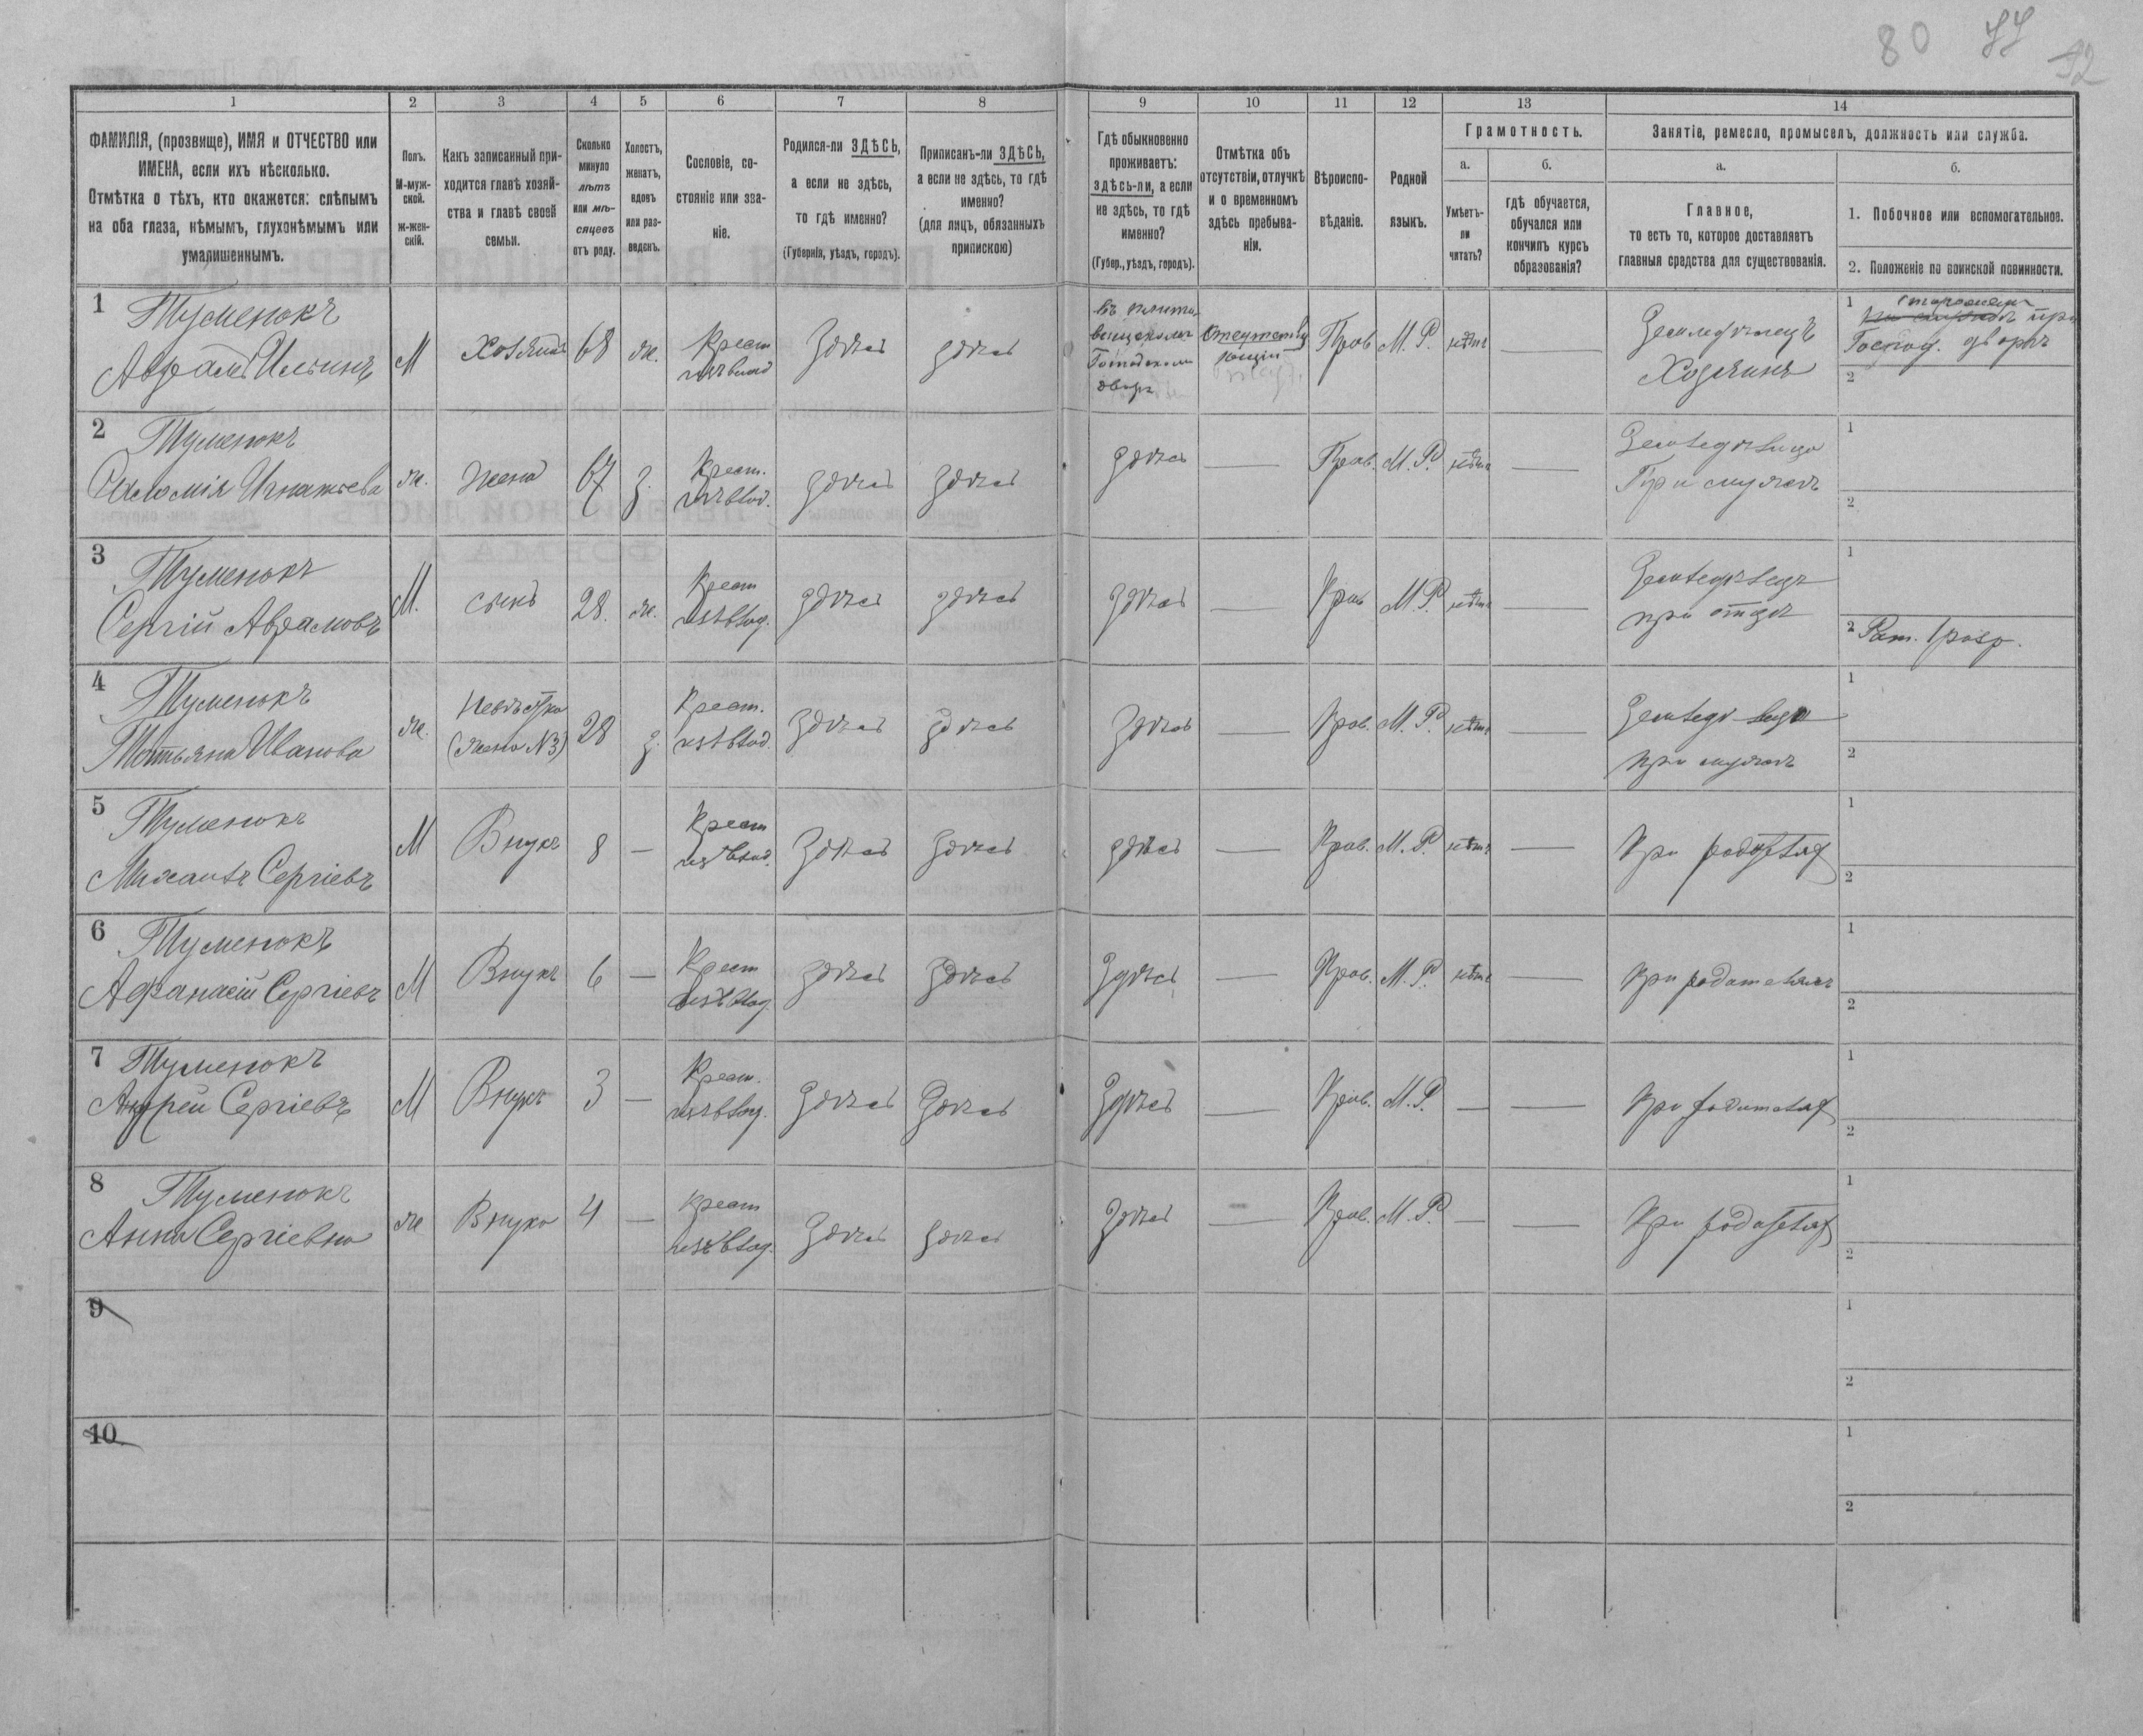 80 77 92
1 2 3 4 5 6 7 8 9 10 11 12 13 14
ФАМИЛІЯ, (прозвище), ИМЯ и ОТЧЕСТВО или
ИМЕНА, если ихъ нѣсколько.
Отмѣтка о тѣхъ, кто окажется: слѣпымъ
на оба глаза, нѣмымъ, глухонѣмымъ или
умалишеннымъ.
Полъ.
М-муж-
ской.
Ж-жен-
скій.
Какъ записанный при-
ходится главѣ хозяй-
ства и главѣ своей
семьи.
Сколько
минуло
лѣтъ
или мѣ-
сяцевъ
отъ роду.
Холостъ,
женатъ,
вдовъ
или раз-
веденъ.
Сословіе, со-
стояніе или зва-
ніе.
Родился-ли ЗДѢСЬ,
а если не здѣсь,
то гдѣ именно?
(Губернія, уѣздъ, городъ).
Приписанъ-ли ЗДѢСЬ,
а если не здѣсь, то гдѣ
именно?
(для лицъ, обязанныхъ
припискою)
Гдѣ обыкновенно
проживаетъ:
здѣсь-ли, а если
не здѣсь, то гдѣ
именно?
(Губер., уѣздъ, городъ).
Отмѣтка объ
отсутствіи, отлучкѣ
и о временномъ
здѣсь пребыва-
ніи.
Вѣроиспо-
вѣданіе.
Родной
языкъ.
Грамотность.
а.
Умѣетъ-
ли
читать?
б.
гдѣ обучается,
обучался или
кончилъ курсъ
образованія?
Занятіе, ремесло, промыселъ, должность или служба.
а.
Главное,
то есть то, которое доставляетъ
главныя средства для существованія.
б.
1. Побочное или вспомогательное.
2. Положеніе по воинской повинности.
1 Туменюкъ
Аврамъ Ильинъ
М Хозяинъ 68 ж. Крест
изъ влад
Здѣсь здѣсь
Господском
дворѣ
Отсутству
ющій
Прав М. Р. нѣтъ —
Земледѣлецъ
Хозяинъ
1 сторожем
при
Господ. дворѣ
2
2 Туменюкъ
Саломія Игнатьева
ж. Жена 67 з. Крест.
изъ влад.
здѣсь здѣсь здѣсь — Прав. М. Р. нѣтъ —
Земледѣлица
При мужѣ
1
2
3 Туменюкъ
Сергій Аврамовъ
М. сынъ 28. ж. Крест
изъ влад.
здѣсь здѣсь здѣсь — Прав М. Р. нѣтъ —
Земледѣлецъ
при отцѣ
1
2 Рат. 1 разр.
4 Туменюкъ
Татьяна Иванова
ж. Невѣстка
(жена №3)
28 з. Крест.
изъ влад.
здѣсь здѣсь здѣсь — Прав. М. Р. нѣтъ —
при мужѣ
1
2
5 Туменюкъ
Михаилъ Сергіевъ
М Внукъ 8 — Крест
изъ влад.
Здѣсь здѣсь здѣсь — Прав. М. Р. нѣтъ —
При
1
2
6 Туменюкъ
Афанасій Сергіевъ
М Внукъ 6 — Крест
изъ влад.
здѣсь здѣсь Здѣсь — Прав. М. Р. нѣтъ —
При родителяхъ
1
2
7 Туменюкъ
Андрей Сергіевъ
М Внукъ 3 — Крест.
изъ влад.
здѣсь здѣсь Здѣсь — Прав. М. Р. — —
При
1
2
8 Туменюкъ
Анна Сергіевна
ж Внука 4 — Крест
изъ влад.
здѣсь здѣсь здѣсь — Прав. М. Р. — —
При
1
2
9
1
2
10
1
2